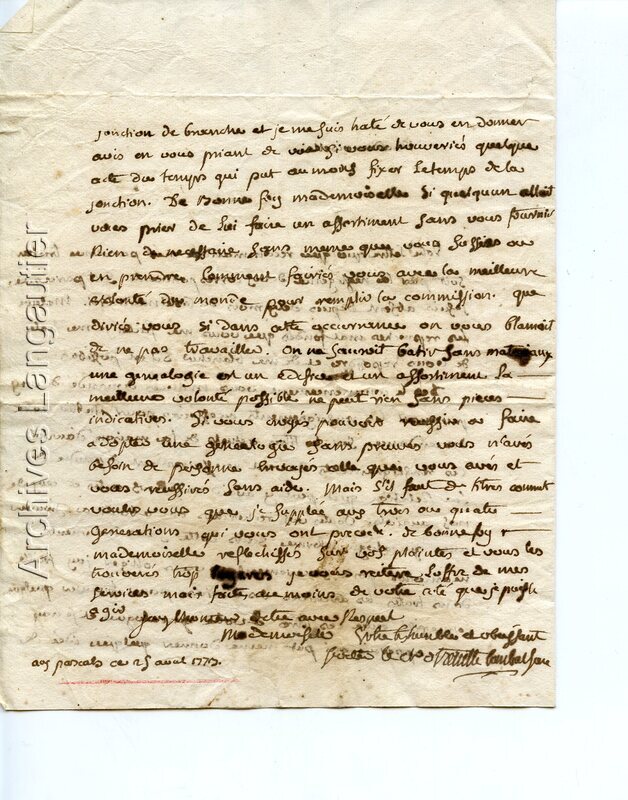 jonction de branche et je me suis haté de vous en donner
avis en vous priant de voir si vous trouveriés quelque
acte du temps qui put au moins fixer le temps de la
jonction. De bonne foy mademoiselle si quelquun alloit
vous prier de lui faire un assortiment sans vous fournir
Rien de necessaire sans meme que vous sussies ou
en prendre, comment fairiés vous avec la meilleure
volonté du monde pour remplir la commission. que
diriés vous si dans cette occurrance on vous blamoit
de ne pas travailler. on ne sauroit batir sans materiaux
une genealogie est un edifice et un assortiment la
meilleure volonté possible ne peut rien sans pieces
indicatives. Si vous croyés pouvoir reussir a faire
adopter une Genealogie sans preuves vous n'avés
besoin de personne envoyés celle que vous avés et
vous reussirés sans aide. Mais s'il faut de titres comment
voulés vous que je supplée aux trois ou quatre
generations qui vous ont precedé. de bonne foy
mademoiselle reflechisses sur vos plaintes et vous les
trouveres trop je vous reitere l'offre de mes
services mais faites au moins de votre coté que je puisse
avec Respect
Mademoiselle Votre tres humble et obeissant
aux pascals ce 25 aout 1773.
Archives Langautier